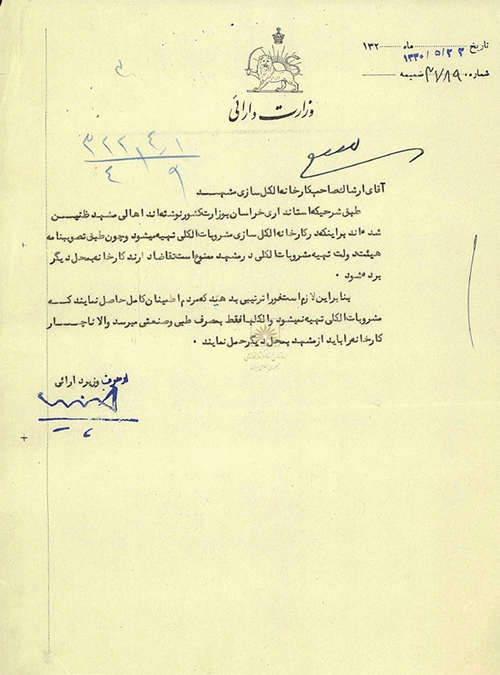 تاریخ ماه ۱۳۲
۱۳۳۰/۵/۲۳
شماره ۳۱۸۹۰ ضمیمه
وزارت دارائی
آقای ارشاك صاحب کارخانه الکل سازی مشهد
طبق شرحیکه استانداری خراسان بوزارت کشور نوشته اند اهالی مشهد ظنین
شده اند براینکه در کارخانه الکل سازی مشروبات الکلی تهیه میشود و چون طبق تصویبنامه
هیئت دولت تهیه مشروبات الکلی در مشهد ممنوع است تقاضا دارند کارخانه بمحل دیگر
برده شود ۰
بنابراین لازم است فورا ترتیبی بدهید که مردم اطمینان کامل حاصل نمایند که
مشروبات الکلی تهیه نمیشود و الکلها فقط بمصرف طبی و صنعتی میرسد والا ناچار
کارخانه را باید از مشهد بمحل دیگر حمل نمایند ۰
از طرف وزیر دارائی